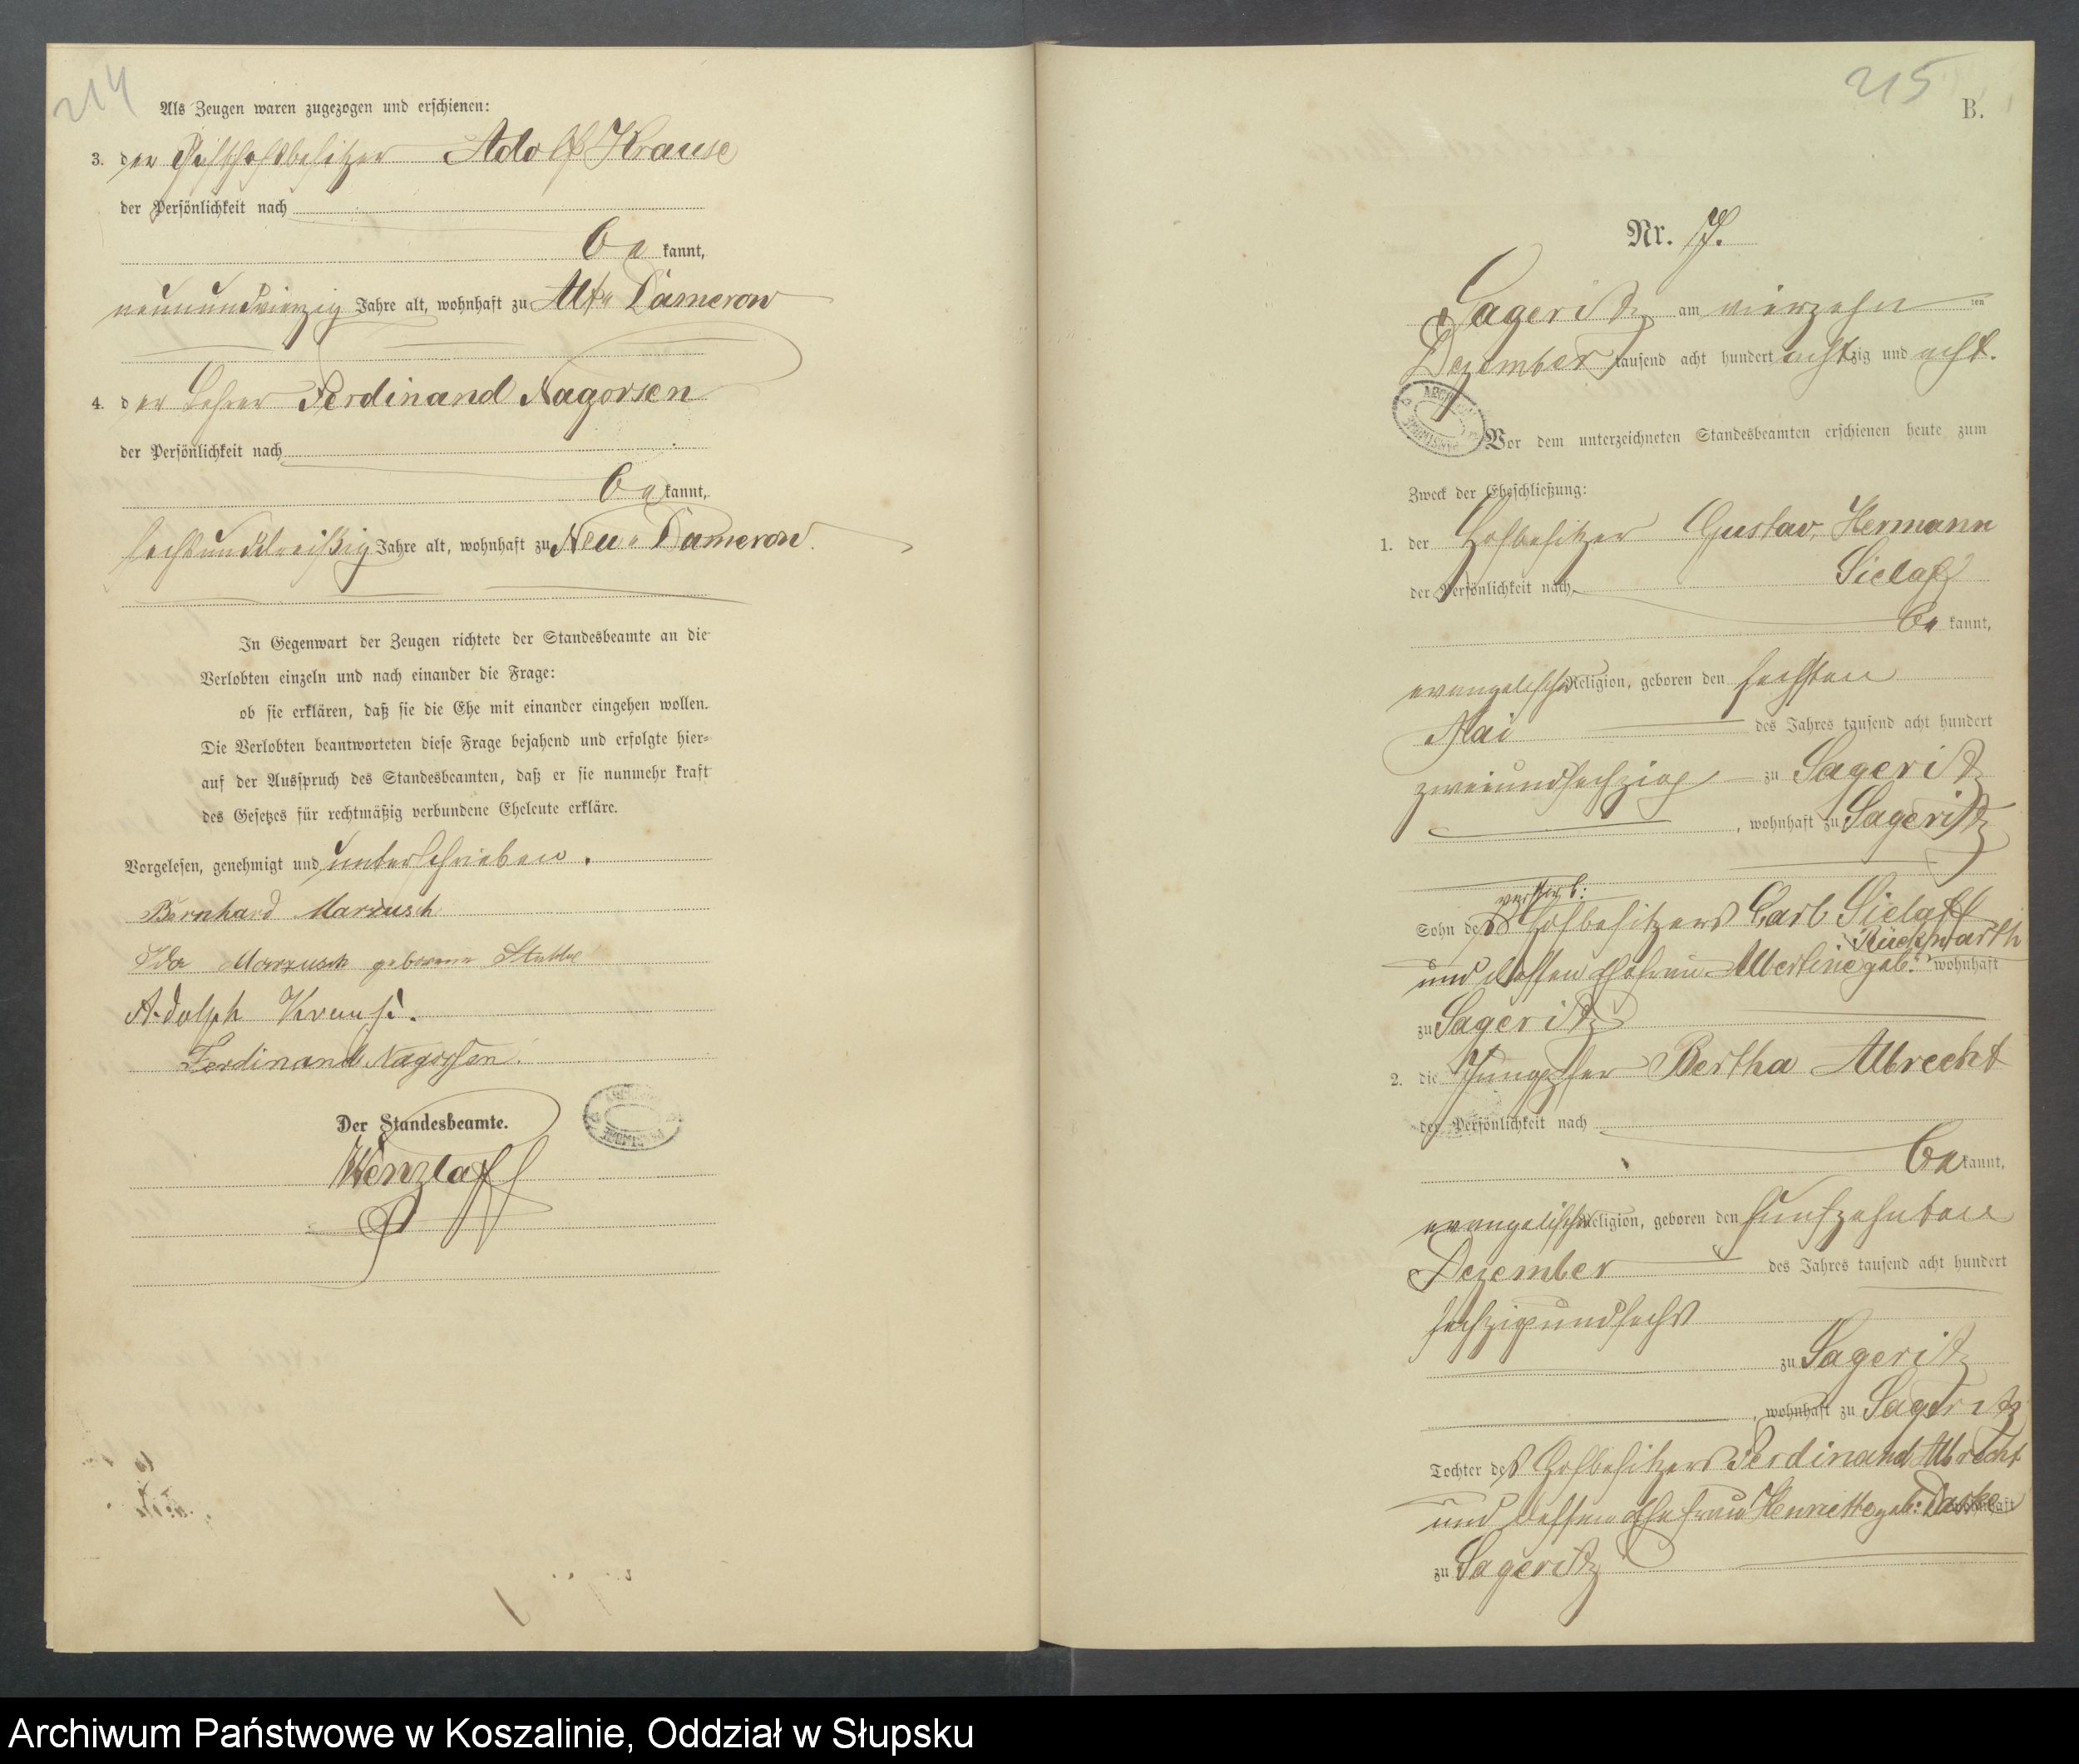 214
Als Zeugen waren zugezogen und erschienen:
3. der Gutshofsbesitzer Adolf Krause
der Persönlichkeit nach
bekannt,
neunundvierzig Jahre alt, wohnhaft zu Alt-Damerow
4. der Lehrer Ferdinand Nagorsen
der Persönlichkeit nach
bekannt,
sechsunddreißig Jahre alt, wohnhaft zu Neu-Damerow.
In Gegenwart der Zeugen richtete der Standesbeamte an die
Verlobten einzeln und nach einander die Frage:
ob sie erklären, daß sie die Ehe mit einander eingehen wollen.
Die Verlobten beantworteten diese Frage bejahend und erfolgte hier-
auf der Ausspruch des Standesbeamten, daß er sie nunmehr kraft
des Gesetzes für rechtmäßig verbundene Eheleute erkläre.
Vorgelesen, genehmigt und unterschrieben.
Bernhard Marzusch
Ida Marzusch geborene
Adolph Krause.
Ferdinand Nagorsen.
Der Standesbeamte.
Wenzlaff
215
B.
Nr. 17.
Sageritz am vierzehn ten
Dezember tausend acht hundert achtzig und acht.
Vor dem unterzeichneten Standesbeamten erschienen heute zum
Zweck der Eheschließung:
1. der Hofbesitzer Gustav, Hermann
Sielaff
der Persönlichkeit nach
bekannt,
evangelischer Religion, geboren den sechsten
Mai des Jahres tausend acht hundert
zweiundsechzig zu Sageritz
, wohnhaft zu Sageritz
verstorb:
Sohn des Hofbesitzers Carl Sielaff
Rückwarth
und dessen Ehefrau Albertine geb: wohnhaft
zu Sageritz
2. die Jungfer Bertha Albrecht
der Persönlichkeit nach
bekannt,
evangelischer Religion, geboren den funfzehnten
Dezember des Jahres tausend acht hundert
sechzigundsechs
zu Sageritz
, wohnhaft zu Sageritz
Tochter des Hofbesitzers Ferdinand Albrecht
und dessen Ehefrau Henriette geb: Daske wohnhaft
zu Sageritz
Archiwum Państwowe w Koszalinie, Oddział w Słupsku